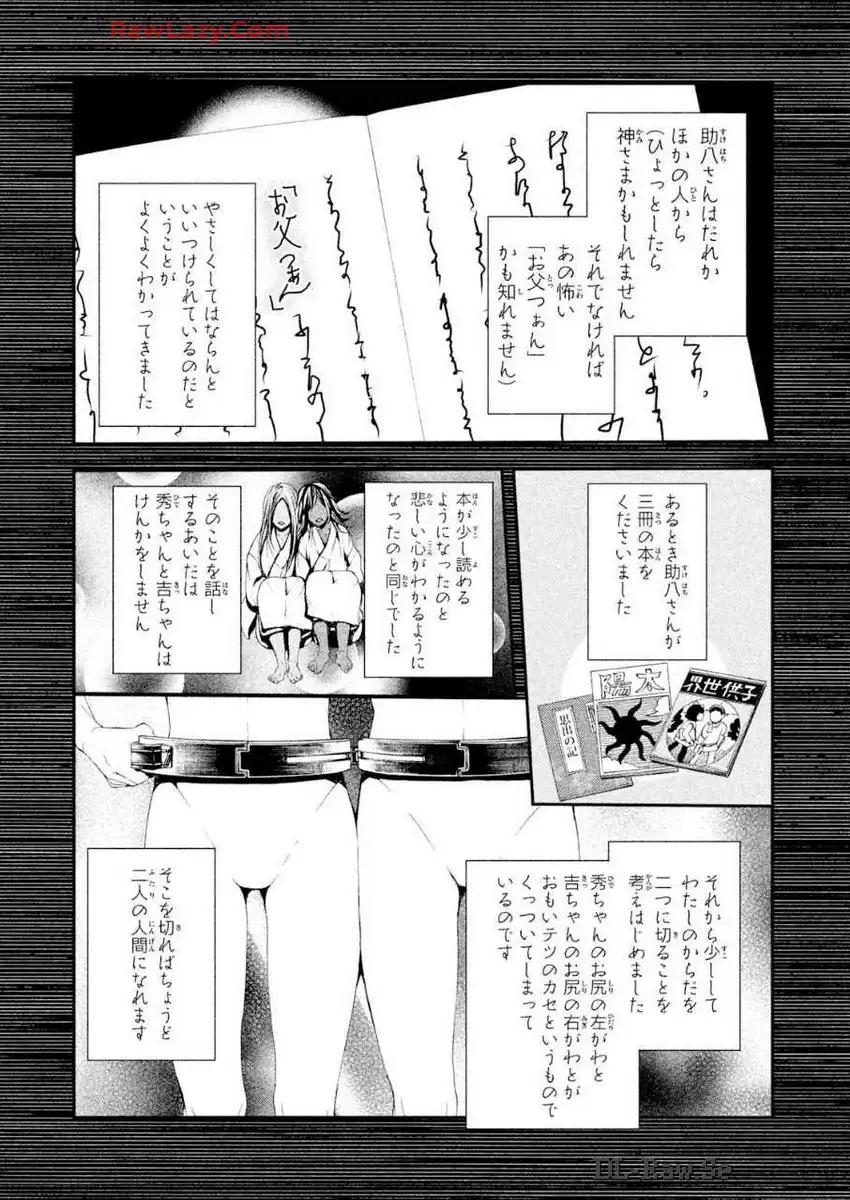 RawLazy.Com
助八さんはだれか
ほかの人から
(ひょっとしたら
神さまかもしれません
それでなければ
あの怖い
「お父つぁん」
かも知れません)
「お父つぁん」
やさしくしてはならんと
いいつけられているのだと
いうことが
よくよくわかってきました
あるとき助八さんが
三冊の本を
くださいました
子供世界
太陽
思出の記
本が少し読める
ようになったのと
悲しい心がわかるように
なったのと同じでした
そのことを話し
するあいだは
秀ちゃんと吉ちゃんは
けんかをしません
それから少しして
わたしのからだを
二つに切ることを
考えはじめました
秀ちゃんのお尻の左がわと
吉ちゃんのお尻の右がわとが
おもいテツのカセというもので
くっついてしまって
いるのです
そこを切ればちょうど
二人の人間になれます
DL-Raw.Se